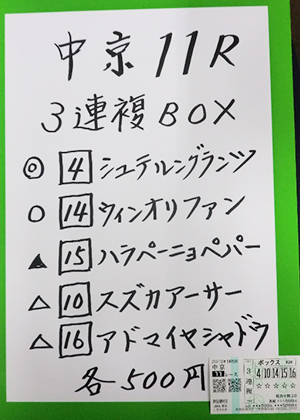 中京11R
3連複BOX
◎ 4 シュテルングランツ
○ 14 ウィンオリファン
▲ 15 ハラペーニョペパー
△ 10 スズカアーサー
△ 16 アドマイヤシャドウ
各500円
中京
11 レース
3連複
ボックス
4 10 14 15 16
☆☆☆☆☆